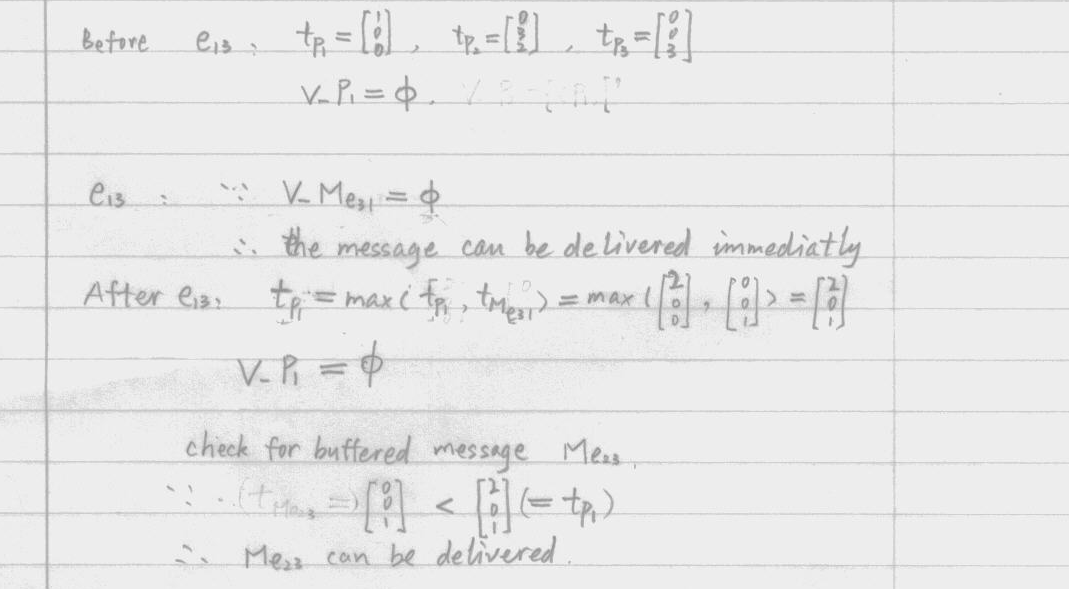 Before e₁₃: t_P₁ = [1 0 0], t_P₂ = [0 3 2], t_P₃ = [0 0 3]
V_P₁ = ϕ.
e₁₃ : ∵ V_Me₃₁ = ϕ
∴ the message can be delivered immediatly
After e₁₃: t_P₁ = max( t_P₁, t_Me₃₁ ) = max ( [2 0 0], [0 0 1] ) = [2 0 1]
V_P₁ = ϕ
check for buffered message Me₂₃.
∵ (t_Me₂₃ =) [0 0 1] < [2 0 1] (= t_P₁)
∴ Me₂₃ can be delivered.